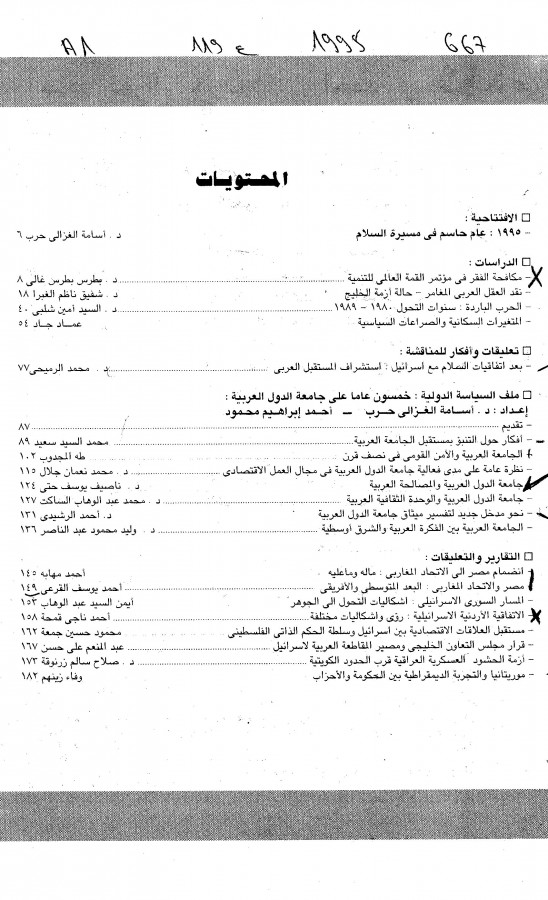 A1 119 ع 1995 667
المحتويات
□ الافتتاحية :
– ١٩٩٥ : عام حاسم فى مسيرة السلام د . أسامة الغزالى حرب ٦
□ الدراسات :
– مكافحة الفقر فى مؤتمر القمة العالمى للتنمية د . بطرس بطرس غالى ٨
– نقد العقل العربى المغامر – حالة أزمة الخليج د . شفيق ناظم الغبرا ١٨
– الحرب الباردة : سنوات التحول ١٩٨٠ – ١٩٨٩ د . السيد أمين شلبى ٤٠
– المتغيرات السكانية والصراعات السياسية عماد جاد ٥٤
□ تعليقات وأفكار للمناقشة :
– بعد اتفاقيات السلام مع اسرائيل : استشراف المستقبل العربى د . محمد الرميحى ٧٧
□ ملف السياسة الدولية : خمسون عاما على جامعة الدول العربية :
إعداد : د . أسامة الغزالى حرب – أحمد إبراهيم محمود
– تقديم ٨٧
– افكار حول التنبؤ بمستقبل الجامعة العربية محمد السيد سعيد ٨٩
– الجامعة العربية والأمن القومى فى نصف قرن طه المجدوب ١٠٢
– نظرة عامة على مدى فعالية جامعة الدول العربية فى مجال العمل الاقتصادى د . محمد نعمان جلال ١١٥
– جامعة الدول العربية والمصالحة العربية د . ناصيف يوسف حتى ١٢٤
– جامعة الدول العربية والوحدة الثقافية العربية د . محمد عبد الوهاب الساكت ١٢٧
– نحو مدخل جديد لتفسير ميثاق جامعة الدول العربية د. أحمد الرشيدى ١٣١
– الجامعة العربية بين الفكرة العربية والشرق أوسطية د . وليد محمود عبد الناصر ١٣٦
□ التقارير والتعليقات :
– انضمام مصر الى الاتحاد المغاربى : ماله وماعليه أحمد مهابه ١٤٥
– مصر والاتحاد المغاربى : البعد المتوسطى والأفريقى أحمد يوسف القرعى ١٤٩
– المسار السورى الاسرائيلى : اشكاليات التحول الى الجوهر أيمن السيد عبد الوهاب ١٥٣
– الاتفاقية الأردنية الاسرائيلية : رؤى واشكاليات مختلفة أحمد ناجى قمحة ١٥٨
– مستقبل العلاقات الاقتصادية بين اسرائيل وسلطة الحكم الذاتى الفلسطينى محمود حسين جمعة ١٦٢
– قرار مجلس التعاون الخليجى ومصير المقاطعة العربية لاسرائيل عبد المنعم على حسن ١٦٧
– أزمة الحشود العسكرية العراقية قرب الحدود الكويتية د . صلاح سالم زرنوقة ١٧٣
– موريتانيا والتجربة الديمقراطية بين الحكومة والأحزاب وفاء زينهم ١٨٢